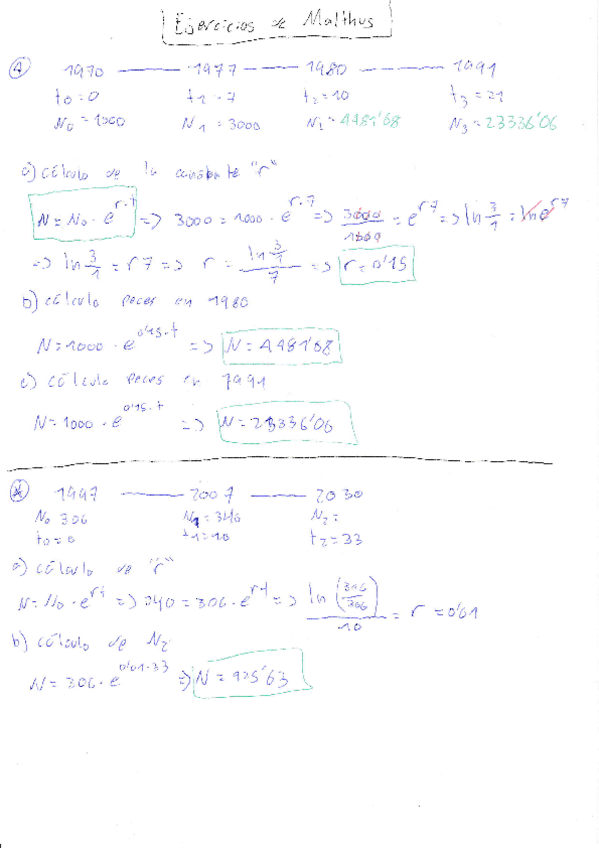 Ejercicios de Malthus
① 1970 — 1977 — 1980 — 1991
t0=0 t1=7 t2=10 t3=21
N0=1000 N1=3000 N2=4481'68 N3=23336'06
a) cálculo de la constante "r"
N=N0·e^r·t => 3000=1000·e^r·7 => 3000/1000 = e^r7 => ln 3/1 = ln e^r7
=> ln 3/1 = r7 => r = (ln 3/1)/7 => r=0'15
b) cálculo peces en 1980
N=1000·e^0'15·t => N=4481'68
c) cálculo peces en 1991
N=1000·e^0'15·t => N=23336'06
1997 — 2007 — 2030
N0 306 N1=346 N2=
t0=0 t1=10 t2=33
a) cálculo de "r"
N=N0·e^rt => 306·e^rt => ln(346/306)/10 = r
b) cálculo de N2
N=306·e => N=425'63